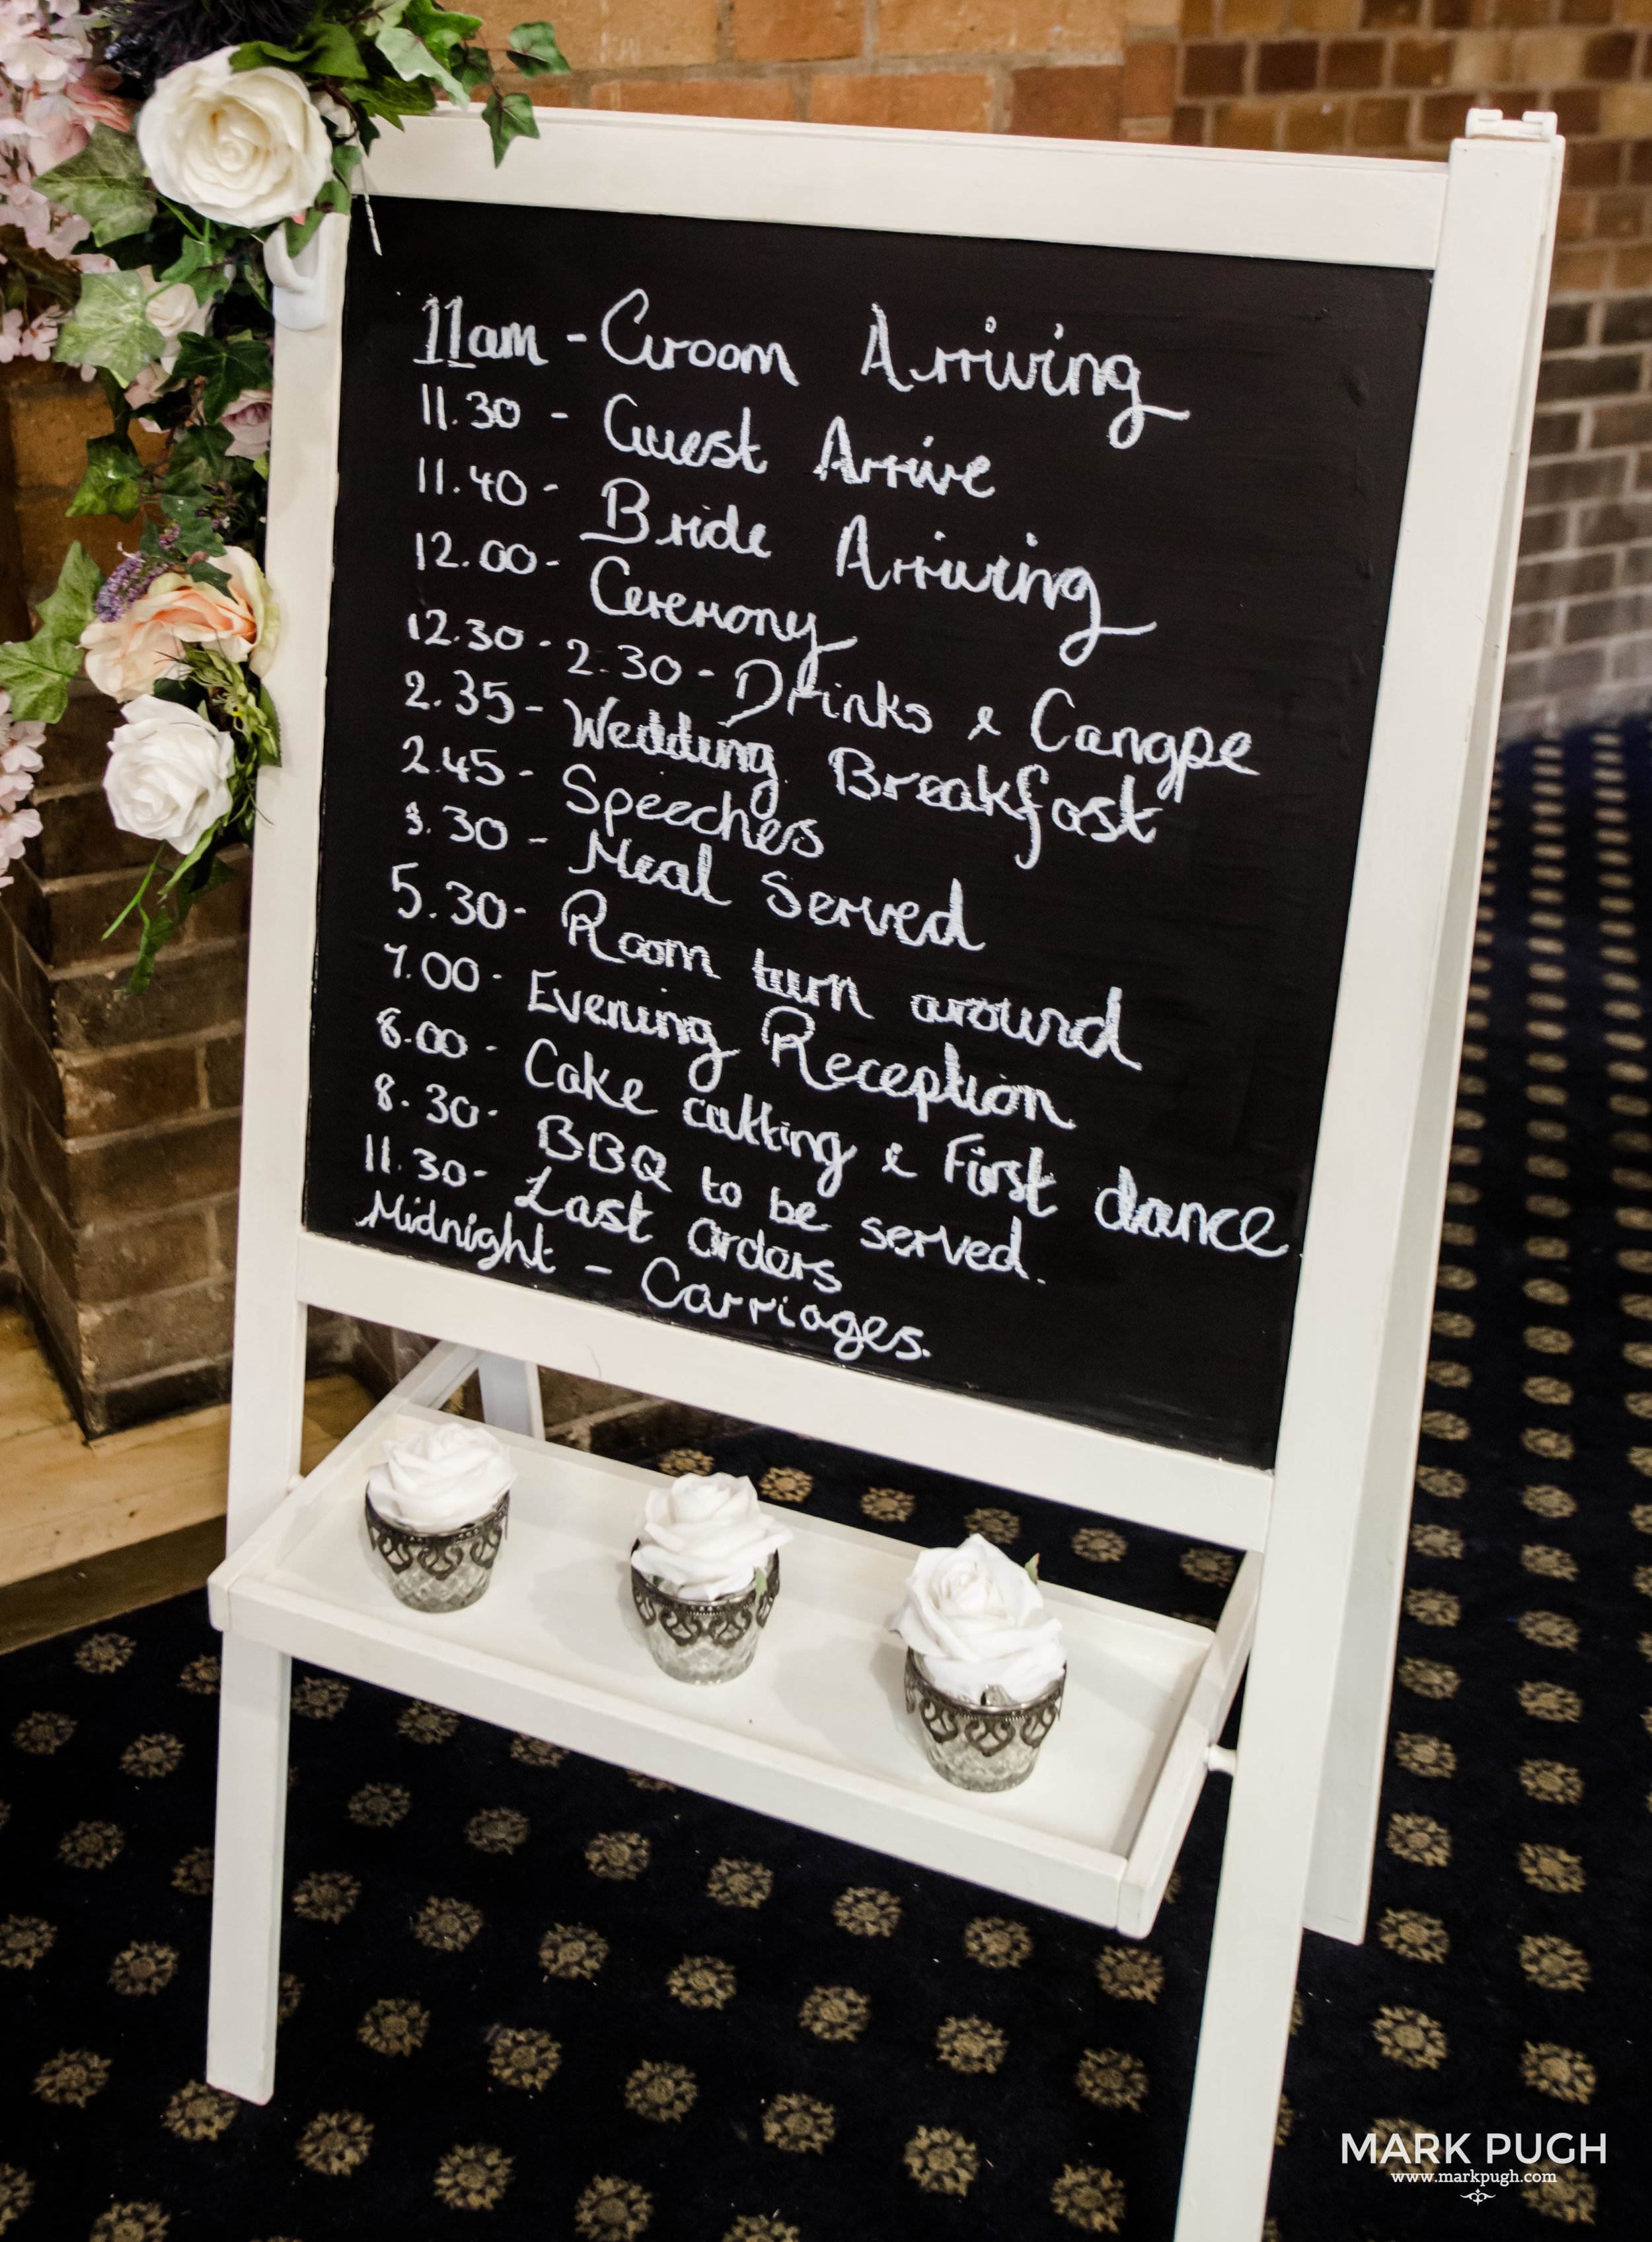 11am - Groom Arriving
11.30 - Guest Arrive
11.40 - Bride Arriving
12.00 - Ceremony
12.30 - 2.30 - Drinks & Cangpe
2.35 - Wedding Breakfast
2.45 - Speeches
3.30 - Meal Served
5.30 - Room turn around
7.00 - Evening Reception
8.00 - Cake cutting & First dance
8.30 - BBQ to be served.
11.30 - Last Orders
Midnight - Carriages.
MARK PUGH
www.markpugh.com